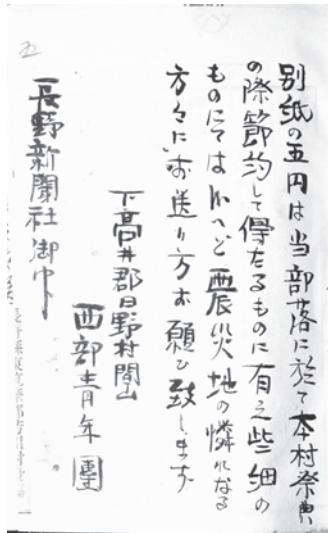 別紙の五円は当部落に於て本村祭典
の際節約して得たるものに有之些細の
ものにては候へど震災地の憐れなる
方々に御送り方御願ひ致します
下高井郡日野村間山
西部青年團
長野新聞社御中
五